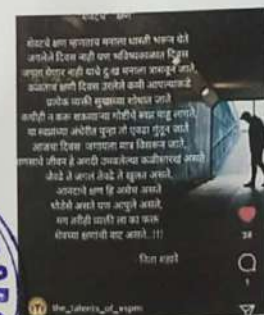 शेवटचे क्षण
शेवटचे क्षण म्हणताच मनाला धास्ती भरून येते
जगलेले दिवस नाही पण भविष्यकाळात दिवस
जगता येणार नाही याचे दुःख मनाला त्रासवून जाते,
कळतात क्षणी दिवस उरलेले कमी आपल्याकडे
प्रत्येक व्यक्ती सुखाच्या शोधात जाते
कधीही न करू शकणाऱ्या गोष्टीचे स्वप्न पाहू लागते,
या स्वप्नांच्या अंधेरीत पुन्हा तो एवढा गुंतून जातो
आजचा दिवस जगायला मात्र विसरून जाते,
माणसाचे जीवन हे अगदी उमललेल्या कळीसारखं असते
जेवढे ते जगलं तेवढे ते खुलत असते,
आयटाचे क्षण हि असेच असते
थोडेसे असते पण आपुले असते,
मग तरीही व्यक्ती ला का फक्त
शेवच्या क्षणाची वाट असते..!!!
38
1
the_talents_of_espm